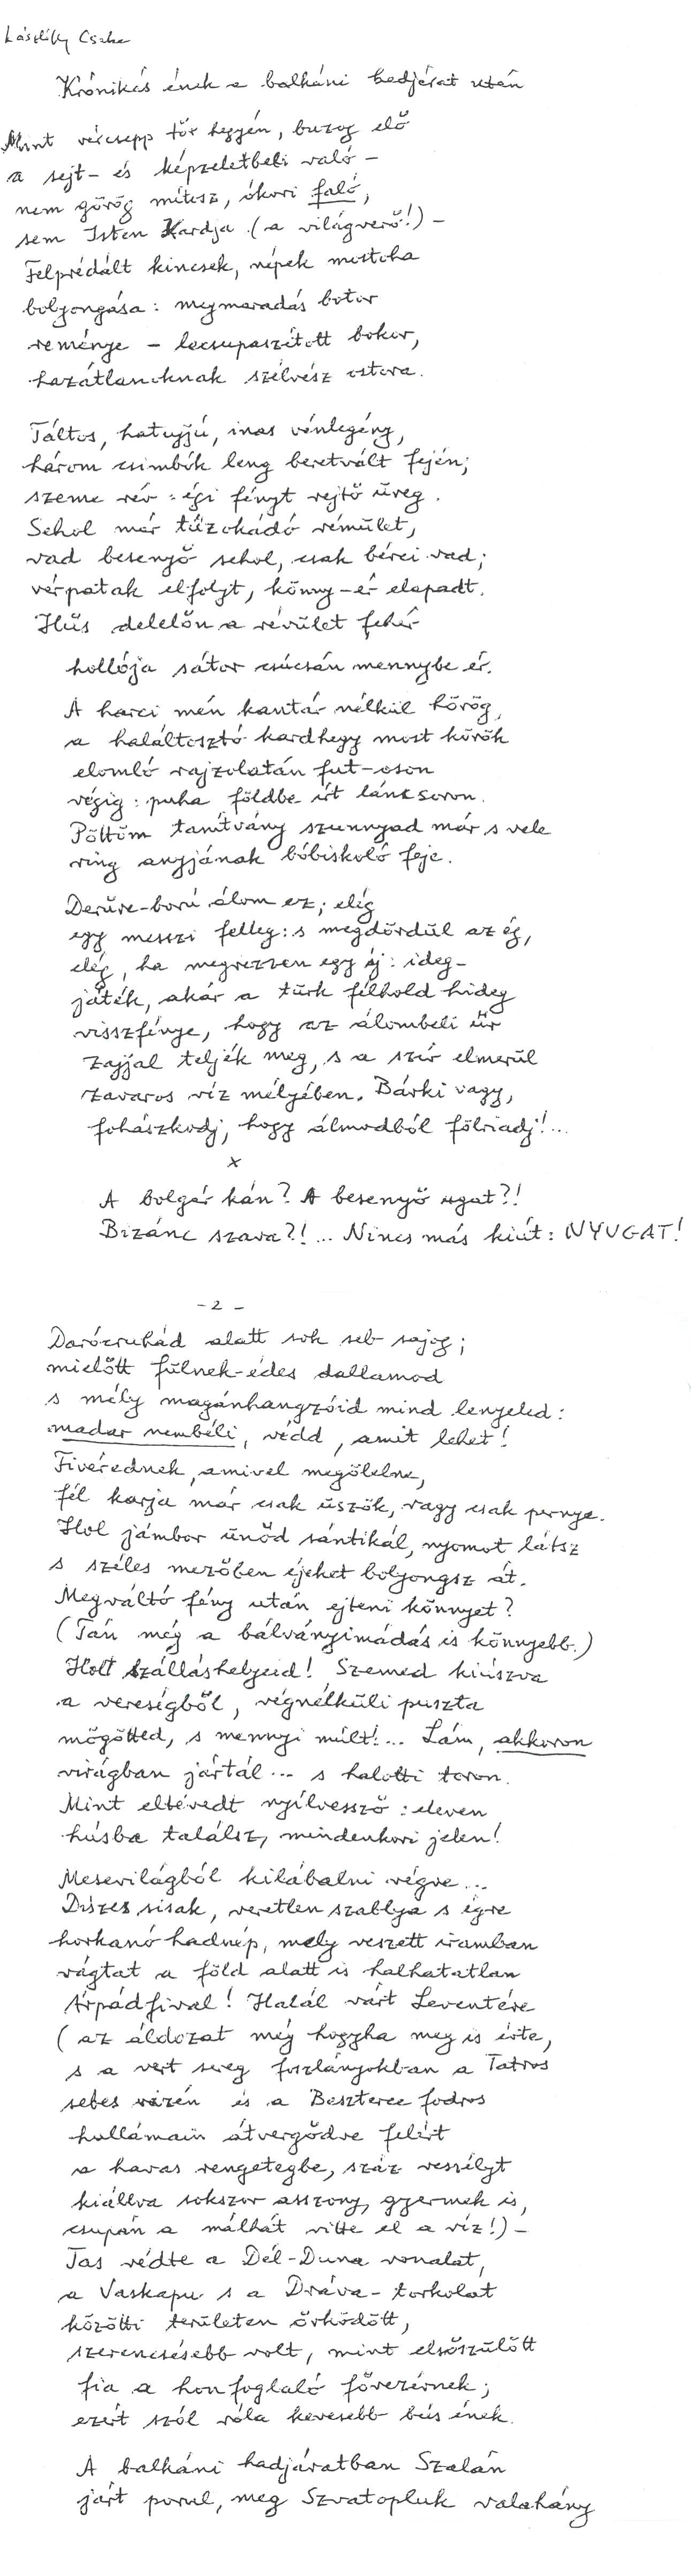 Lászlóffy Csaba
Krónikás ének a balkáni hadjárat után
Mint vércsepp tőr hegyén, buzog elő
a sejt- és képzeletbeli való –
nem görög mítosz, ókori faló,
sem Isten Kardja (a világverő!) –
Felprédált kincsek, népek mostoha
bolyongása: megmaradás botor
reménye – lecsupaszított bokor,
hazátlanoknak szélvész ostora.
Táltos, hatujjú, inas vénlegény,
három csimbók leng beretvált fején;
szeme rév: égi fényt rejtő üreg.
Sehol már tűzokádó rémület,
vad besenyő sehol, csak bérci vad;
vérpatak elfolyt, könny-ér elapadt.
Hűs delelőn a révület fehér
hollója sátor csúcsán mennybe ér.
A harci mén kantár nélkül hörög,
a halálosztó kardhegy most körök
elomló rajzolatán fut-oson
végig: puha földbe írt láncsoron.
Pöttöm tanítvány szunnyad már s vele
ring anyjának bóbiskoló feje.
Derűre-ború álom ez; elég
egy messzi felleg: s megdördül az ég,
elég, ha megrezzen egy íj: ideg-
játék, akár a türk félhold hideg
visszfénye, hogy az álombeli űr
zajjal teljék meg, s a szív elmerül
zavaros víz mélyében. Bárki vagy,
fohászkodj, hogy álmodból fölriadj!...
x
A bolgár kán? A besenyő ugat?!
Bizánc szava?!... Nincs más kiút: NYUGAT!
- 2 -
Daróczruhád alatt sok seb sajog;
mielőtt fülnek-édes dallamod
s mély magánhangzóid mind lenyeled:
madar nembéli, védd, amit lehet!
Fivérednek, amivel megölelne,
fél karja már csak üszök, vagy csak pernye.
Hol jámbor ünőd sántikál, nyomot látsz
s széles mezőben éjeket bolyongsz át.
Megváltó fény után ejteni könnyet?
(Tán még a bálványimádás is könnyebb.)
Holt szálláshelyeid! Szemed kiúszva
a vereségből, végnélküli puszta
mögötted, s mennyi múlt!... Lám, akkoron
virágban jártál... s halotti toron.
Mint eltévedt nyílvessző: eleven
húsba találsz, mindenkori jelen!
Mesevilágból kilábalni végre...
Díszes sisak, veretlen szablya s égre
horkanó hadnép, mely veszett iramban
vágtat a föld alatt is halhatatlan
Árpádfival! Halál várt Leventére
(az áldozat még hogyha meg is érte,
s a vert sereg foszlányokban a Tatros
sebes vizén és a Beszterce fodros
hullámain átvergődve felért
a havas rengetegbe, száz veszélyt
kiállva sokszor asszony, gyermek is,
csupán a málhát vitte el a víz!) –
Tas védte a Dél-Duna vonalat,
a Vaskapu s a Dráva-torkolat
közötti területen őrködött,
szerencsésebb volt, mint elsőszülött
fia a honfoglaló fővezérnek;
ezért szól róla kevesebb bús ének.
A balkáni hadjáratban Szalán
járt porul, meg Szvatopluk valahány